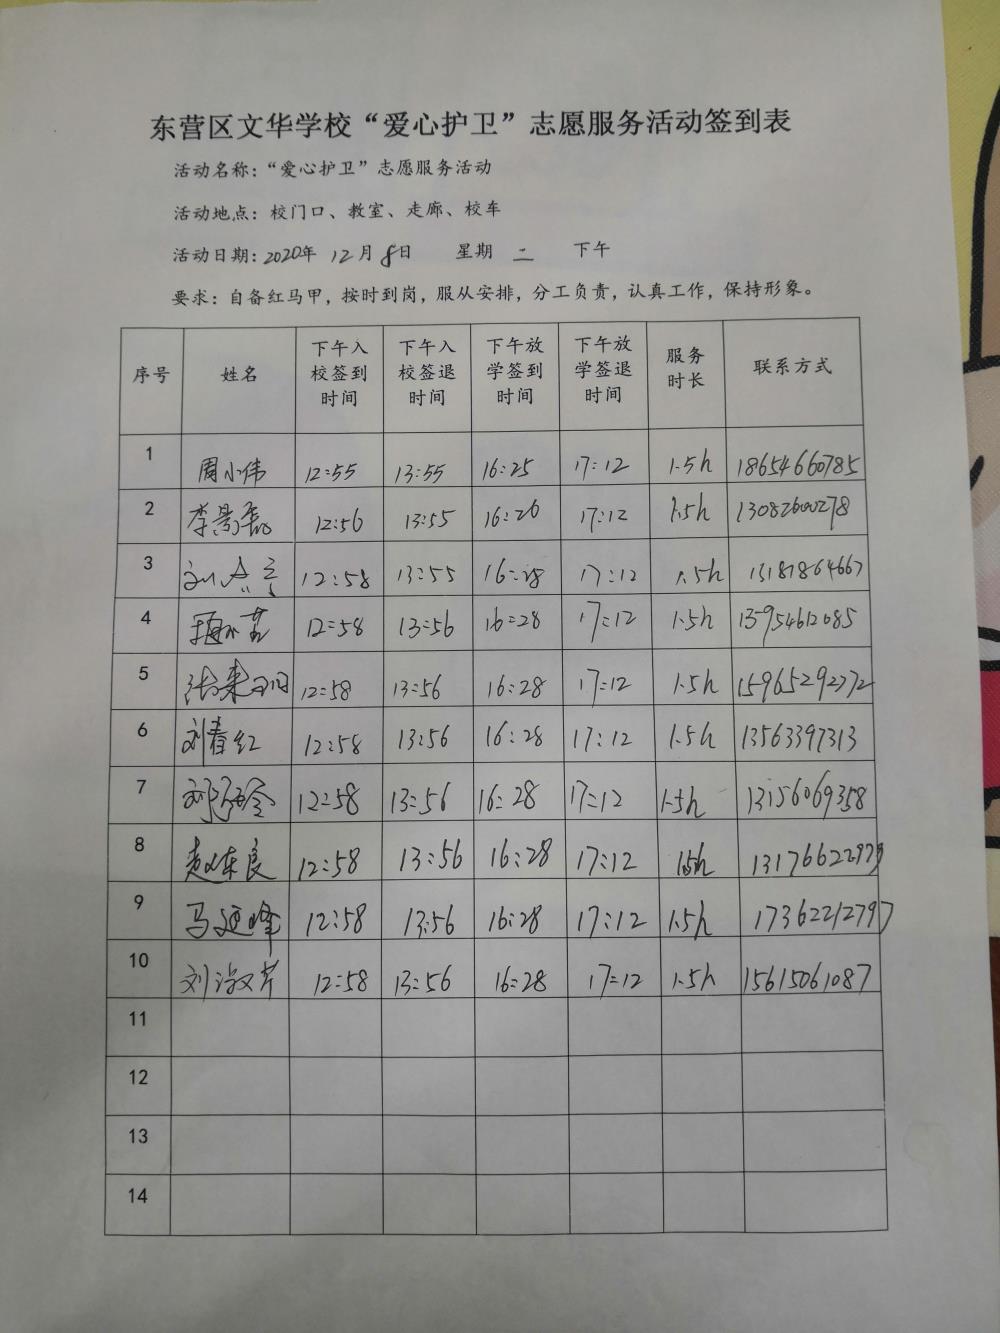 东营区文华学校“爱心护卫”志愿服务活动签到表
活动名称：“爱心护卫”志愿服务活动
活动地点：校门口、教室、走廊、校车
活动日期：2020年 12月 8日 星期 二 下午
要求：自备红马甲，按时到岗，服从安排，分工负责，认真工作，保持形象。
序号 姓名 下午入校签到时间 下午入校签退时间 下午放学签到时间 下午放学签退时间 服务时长 联系方式
1 周小伟 12:55 13:55 16:25 17:12 1.5h 18654660785
2 李 12:56 13:55 16:26 17:12 1.5h 13082600278
3 刘 12:58 13:55 16:28 17:12 1.5h 13181864667
4 12:58 13:56 16:28 17:12 1.5h 13954612085
5 12:58 13:56 16:28 17:12 1.5h 15965292772
6 刘春红 12:58 13:56 16:28 17:12 1.5h 13563397313
7 刘 12:58 13:56 16:28 17:12 1.5h 13156069358
8 赵 良 12:58 13:56 16:28 17:12 1.5h 13176622979
9 马延峰 12:58 13:56 16:28 17:12 1.5h 17362212797
10 刘淑芹 12:58 13:56 16:28 17:12 1.5h 15615061087
11
12
13
14